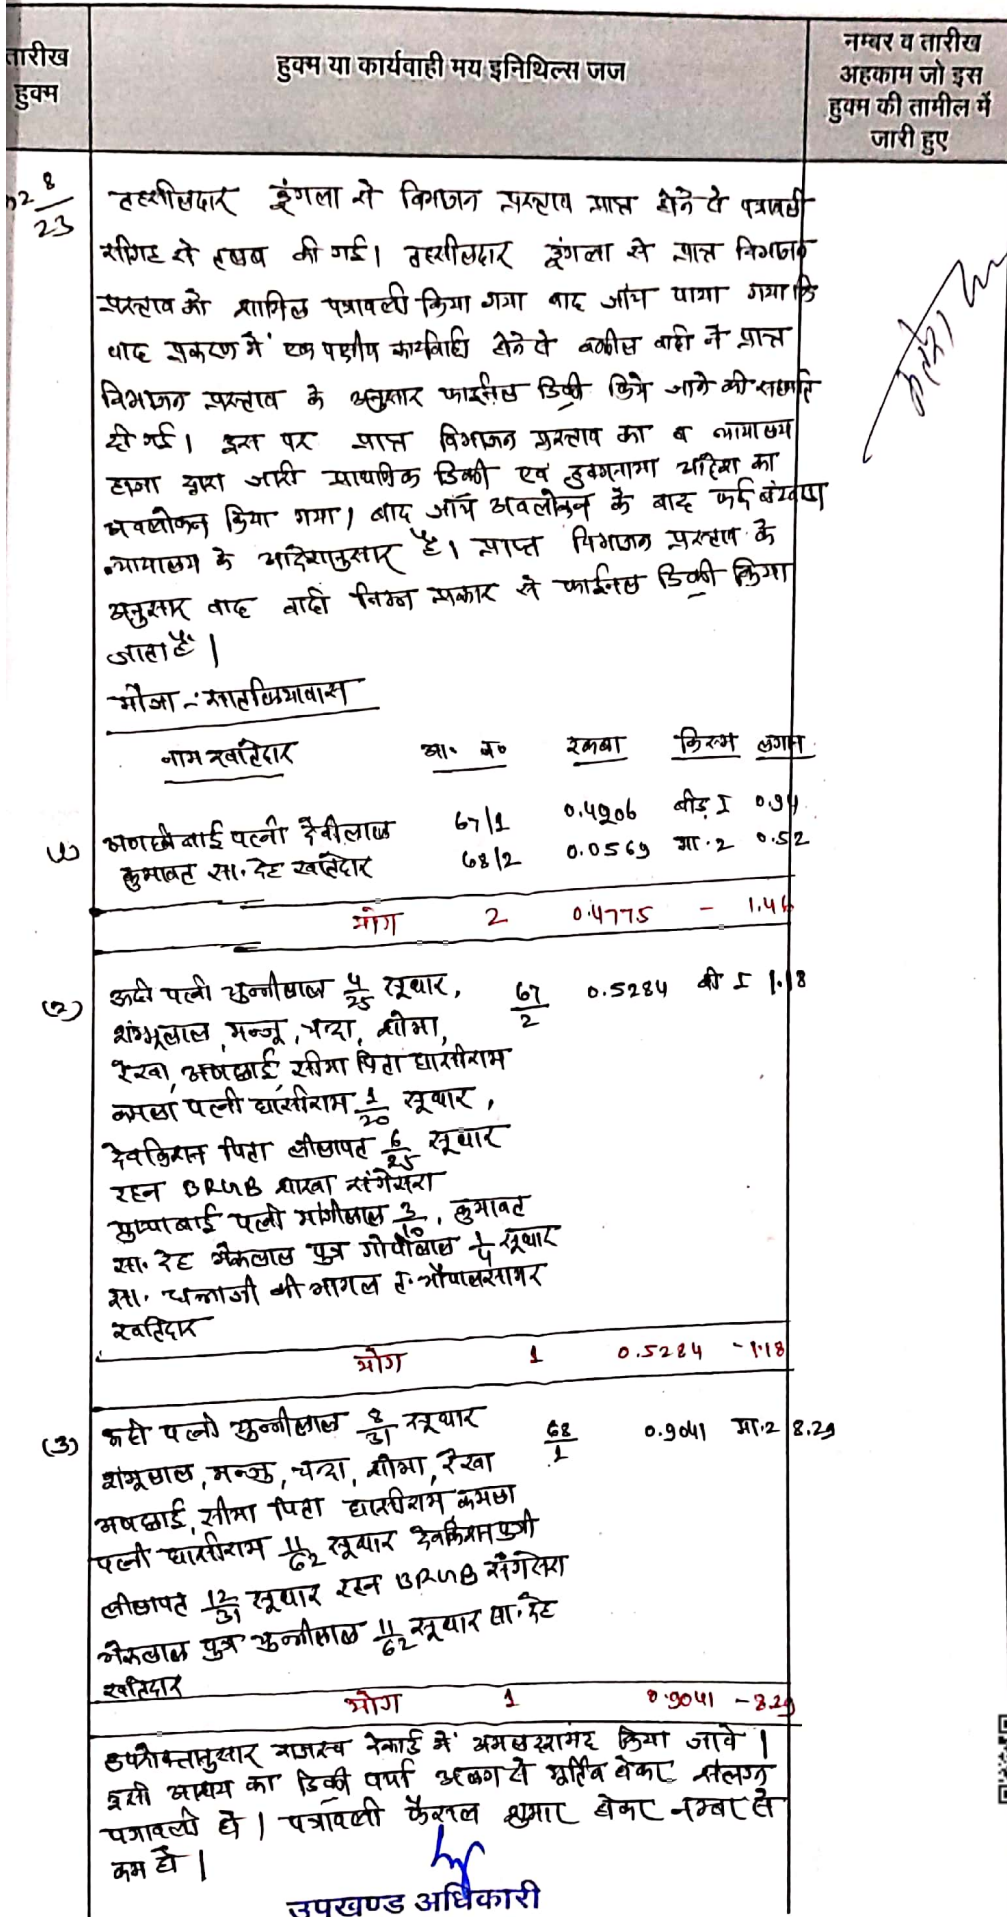 तारीख
हुक्म
हुक्म या कार्यवाही मय इनिथिल्स जज
नम्बर व तारीख
अहकाम जो इस
हुक्म की तामील में
जारी हुए
8
23
तहसीलदार डूंगला से विभाजन प्रस्ताव प्राप्त होने से पत्रावली
सीगह से तलब की गई। तहसीलदार डूंगला से प्राप्त विभाजन
प्रस्ताव को शामिल पत्रावली किया गया बाद जांच पाया गया कि
वाद प्रकरण में एक पक्षीय कार्यवाही होने से वकील वादी ने प्राप्त
विभाजन प्रस्ताव के अनुसार फाईनल डिक्री किये जाने की सहमति
दी गई। इस पर प्राप्त विभाजन प्रस्ताव का व न्यायालय
हाजा द्वारा जारी प्राथमिक डिक्री एवं हुक्मनामा आदेश का
अवलोकन किया गया। बाद जाँच अवलोकन के बाद
न्यायालय के आदेशानुसार है। प्राप्त विभाजन प्रस्ताव के
अनुसार वाद वादी निम्न प्रकार से फाईनल डिक्री किया
जाता है।
मौजा :-
नाम खातेदार आ. न. रकबा किस्म लगान
(1) बाई पत्नी देवीलाल 67/1 0.4206 बीड़ I 0.94
कुमावत सा. देह खातेदार 68/2 0.0569 मा.2 0.52
योग 2 0.4775 - 1.46
(2) पत्नी चुन्नीलाल 4/25 सुथार, 67/2 0.5284 बी I 1.18
शंम्भूलाल, मन्जू, चन्दा, शोभा,
रेखा, सीमा पिता घासीराम
कमला पत्नी घासीराम 1/20 सुथार,
देवकिशन पिता 6/25 सुथार
रहन BRGB शाखा संगेसरा
पुष्पाबाई पत्नी मांगीलाल 3/10, कुमावत
सा. देह भैरूलाल पुत्र गोपीलाल 1/4 सुथार
सा. की भागल त. भोपालसागर
खातेदार
योग 1 0.5284 - 1.18
(3) पत्नी चुन्नीलाल 8/31 सुथार 68/1 0.9041 मा.2 8.29
शंभूलाल, मन्जु, चन्दा, शोभा, रेखा
सीमा पिता घासीराम, कमला
पत्नी घासीराम 11/62 सुथार देवकिशन
12/31 सुथार रहन BRGB संगेसरा
भैरूलाल पुत्र चुन्नीलाल 11/62 सुथार सा. देह
खातेदार
योग 1 0.9041 - 8.29
उपरोक्तानुसार राजस्व रेकार्ड में अमलदरामद किया जावे।
इसी आशय का डिक्री पर्चा अलग से मुर्तिब होकर संलग्न
पत्रावली हो। पत्रावली फैसल शुमार होकर नम्बर से
कम हो।
उपखण्ड अधिकारी